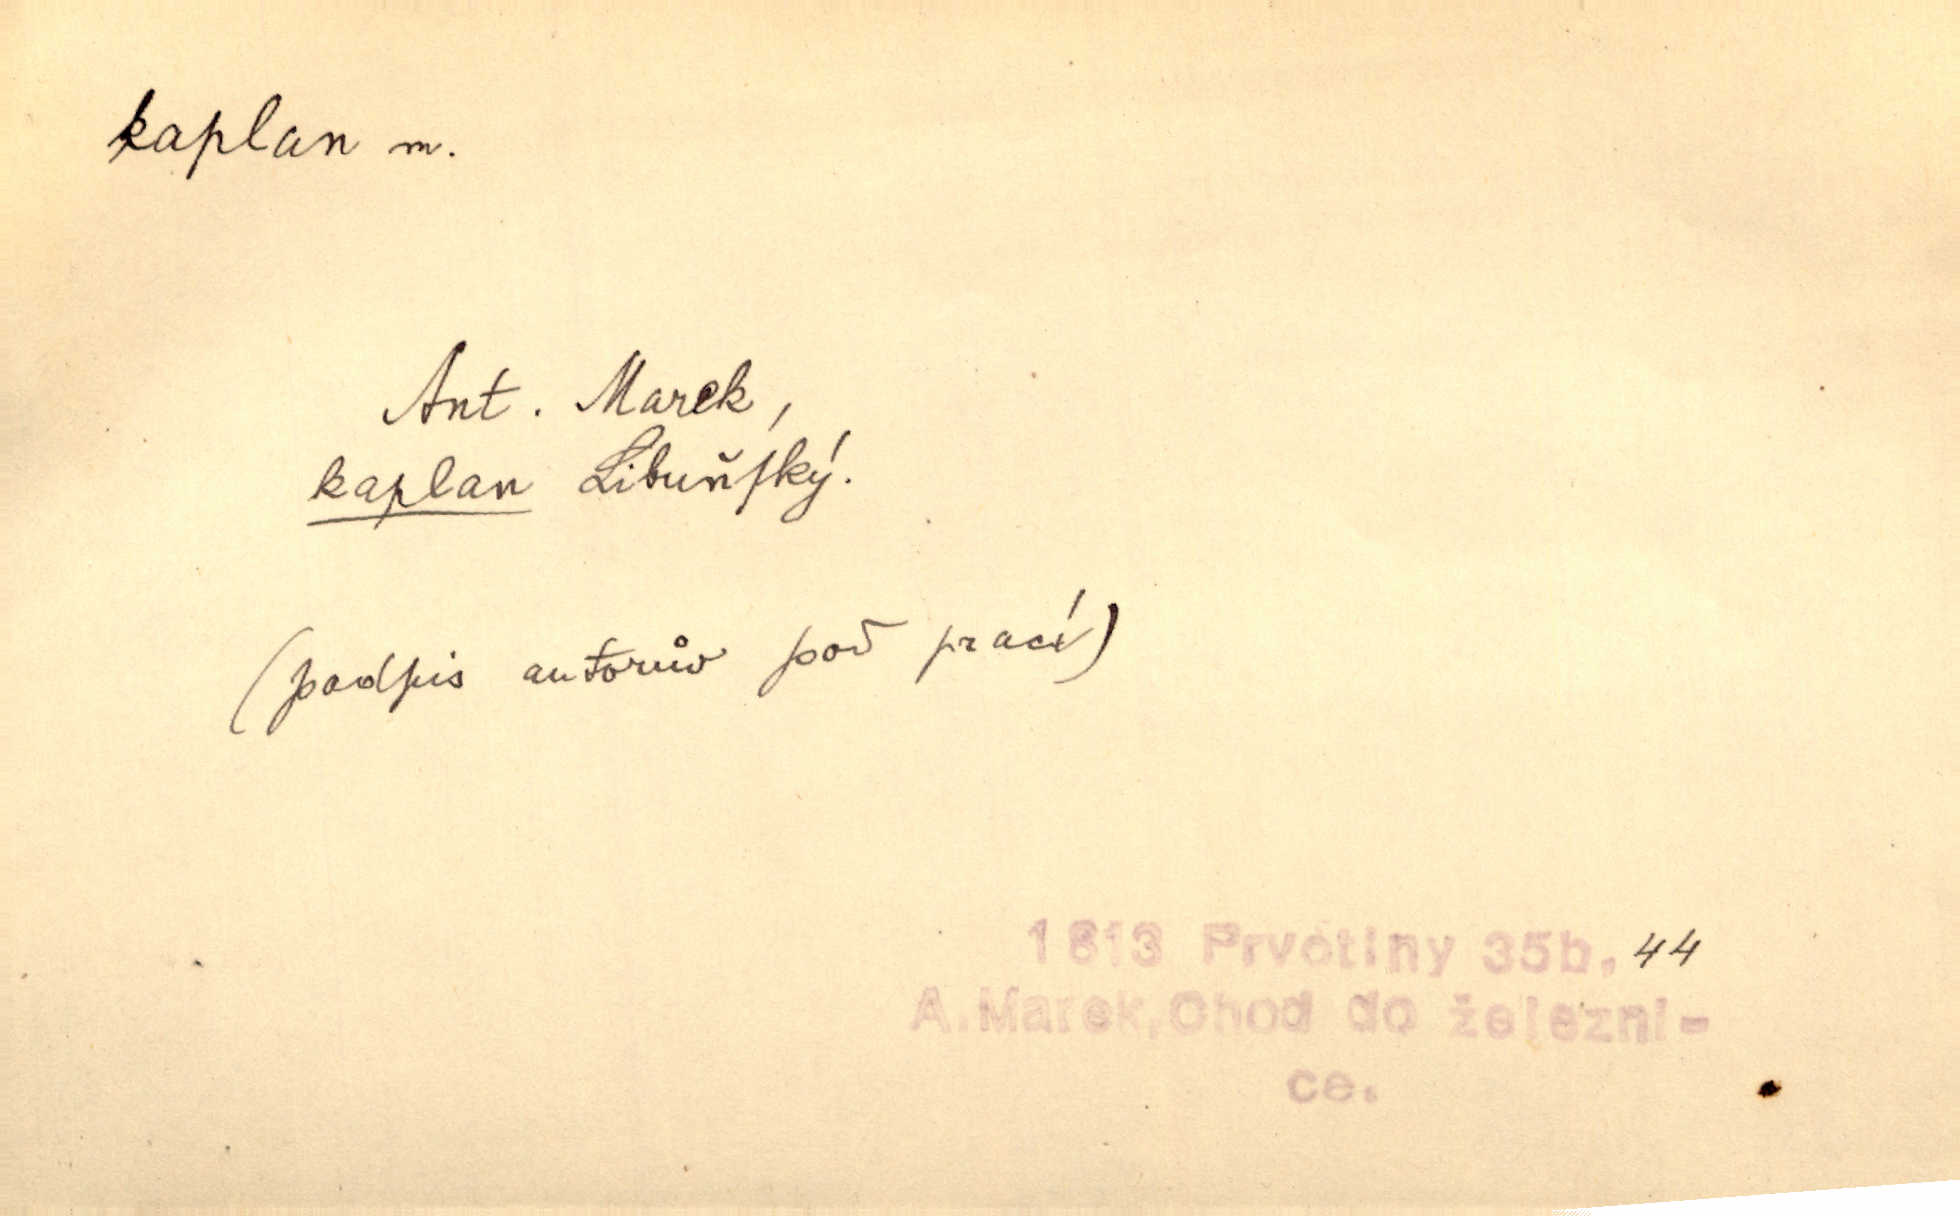 kaplan m.
Ant. Marek,
kaplan Libuňſký.
(podpis autorův pod prací)
1813 Prvotiny 35b, 44
A.Marek,Chod do železni-
ce.